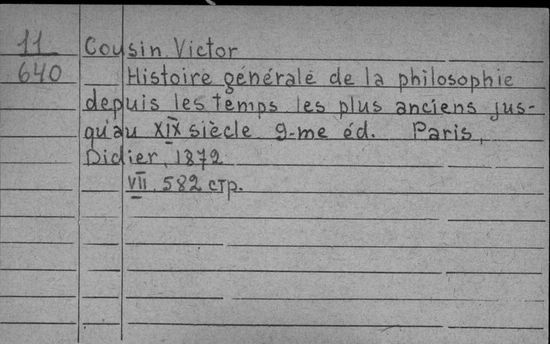 11
640
Cousin Victor
Histoire générale de la philosophie
depuis les temps les plus anciens jus-
qu'au XIX siècle 9-me éd. Paris,
Didier, 1872
VII, 582 стр.